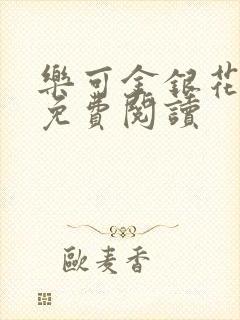 樂可金銀花
免費閱讀
歐麦香